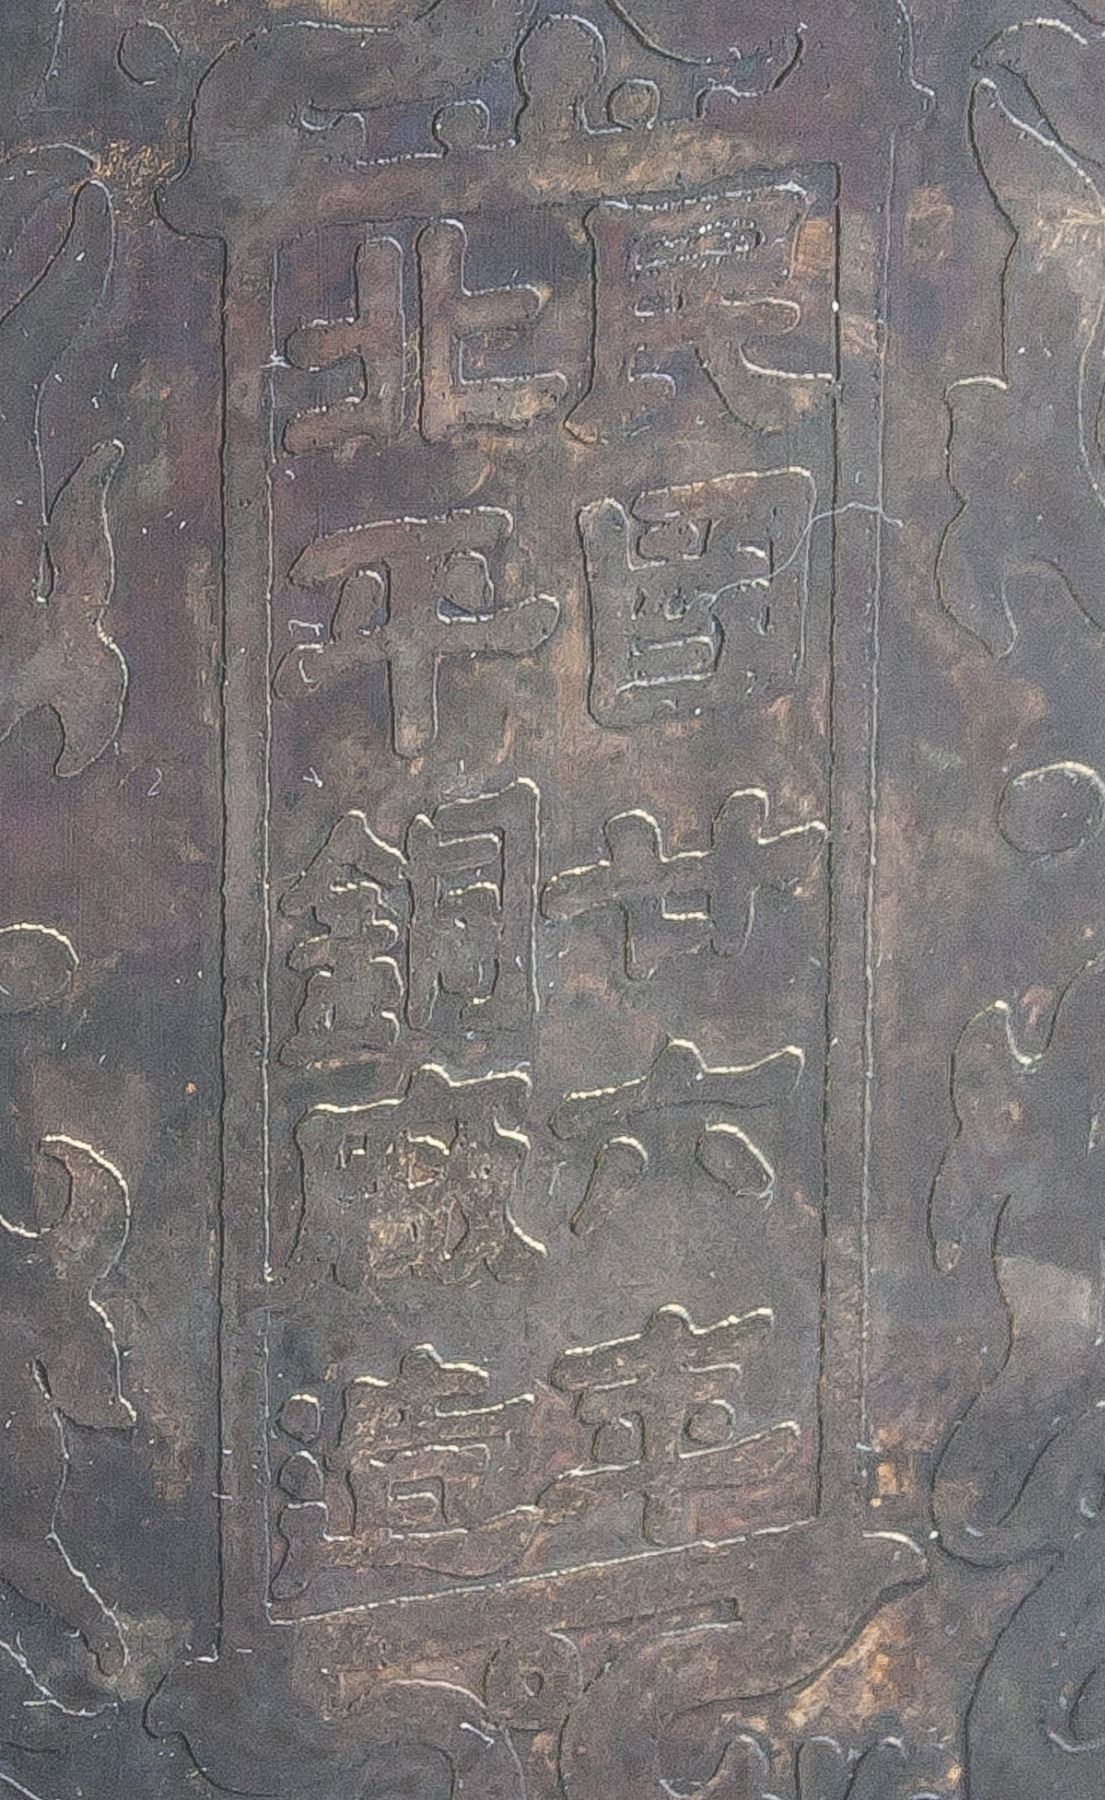 民國廿六年
北平銅廠造